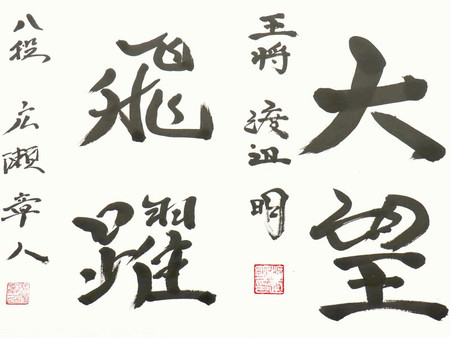 大望
王将 渡辺 明
飛躍
八段 広瀬 章人